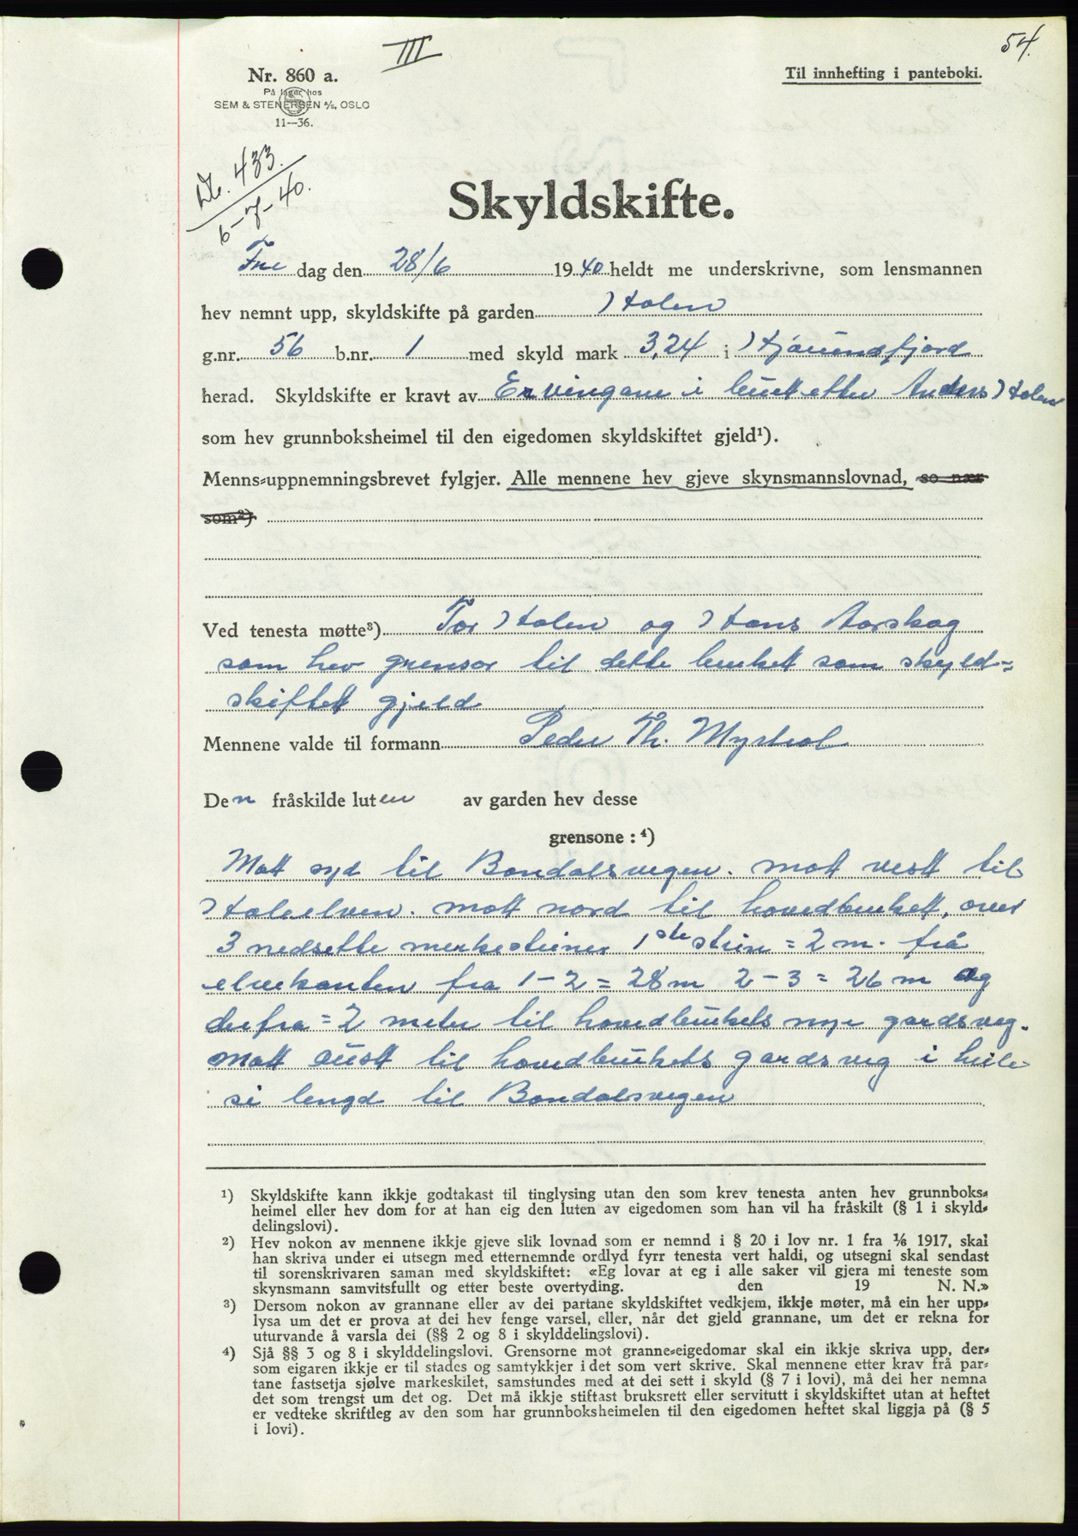 III
54.
Nr. 860 a.
På lager hos
SEM & STENERSEN A/S, OSLO
11—36.
Til innhefting i panteboki.
433.
6-7-40.
Skyldskifte.
Fre dag den 28/6 1940 heldt me underskrivne, som lensmannen
hev nemnt upp, skyldskifte på garden Holen
g.nr. 56 b.nr. 1 med skyld mark 3,24 i Hjørundfjord
herad. Skyldskifte er kravt av Ervingane i buet etter Anders Holen
som hev grunnboksheimel til den eigedomen skyldskiftet gjeld¹).
Menns-uppnemningsbrevet fylgjer. Alle mennene hev gjeve skynsmannslovnad, so nær
som²)
Ved tenesta møtte³) Tor Holen og Hans Aarskog
som hev grensor til dette bruket som skyld=
skiftet gjeld
Mennene valde til formann Peder Th. Myrhol
Den fråskilde luten av garden hev desse
grensone: ⁴)
Mott syd til Bondalsvegen. mott vest til
Holeelven. mott nord til hovedbruket, over
3 nedsette merkesteiner 1ste stein = 2 m. frå
elvekanten fra 1-2 = 28 m 2-3 = 26 m og
derfra = 2 meter til hovedbrukets nye gardsveg.
Mott aust til hovedbrukets gardsveg i heile
si lengd til Bondalsvegen
¹) Skyldskifte kann ikkje godtakast til tinglysing utan den som krev tenesta anten hev grunnboks-
heimel eller hev dom for at han eig den luten av eigedomen som han vil ha fråskilt (§ 1 i skyld-
delingslovi).
²) Hev nokon av mennene ikkje gjeve slik lovnad som er nemnd i § 20 i lov nr. 1 fra 1/6 1917, skal
han skriva under ei utsegn med etternemnde ordlyd fyrr tenesta vert haldi, og utsegni skal sendast
til sorenskrivaren saman med skyldskiftet: «Eg lovar at eg i alle saker vil gjera mi teneste som
skynsmann samvitsfullt og etter beste overtyding. den 19 N. N.»
³) Dersom nokon av grannane eller av dei partane skyldskiftet vedkjem, ikkje møter, må ein her upp-
lysa um det er prova at dei hev fenge varsel, eller, når det gjeld grannane, um det er rekna for
uturvande å varsla dei (§§ 2 og 8 i skylddelingslovi).
⁴) Sjå §§ 3 og 8 i skylddelingslovi. Grensorne mot granne-eigedomar skal ein ikkje skriva upp, der-
som eigaren ikkje er til stades og samtykkjer i det som vert skrive. Skal mennene etter krav frå par-
tane fastsetja sjølve markeskilet, samstundes med at dei sett i skyld (§ 7 i lovi), må dei her nemna
det som trengst um det og. Det må ikkje stiftast bruksrett eller servitutt i skyldskiftet utan at heftet
er vedteke skriftleg av den som har grunnboksheimelen til den eigedomen heftet skal liggja på (§ 5
i lovi).